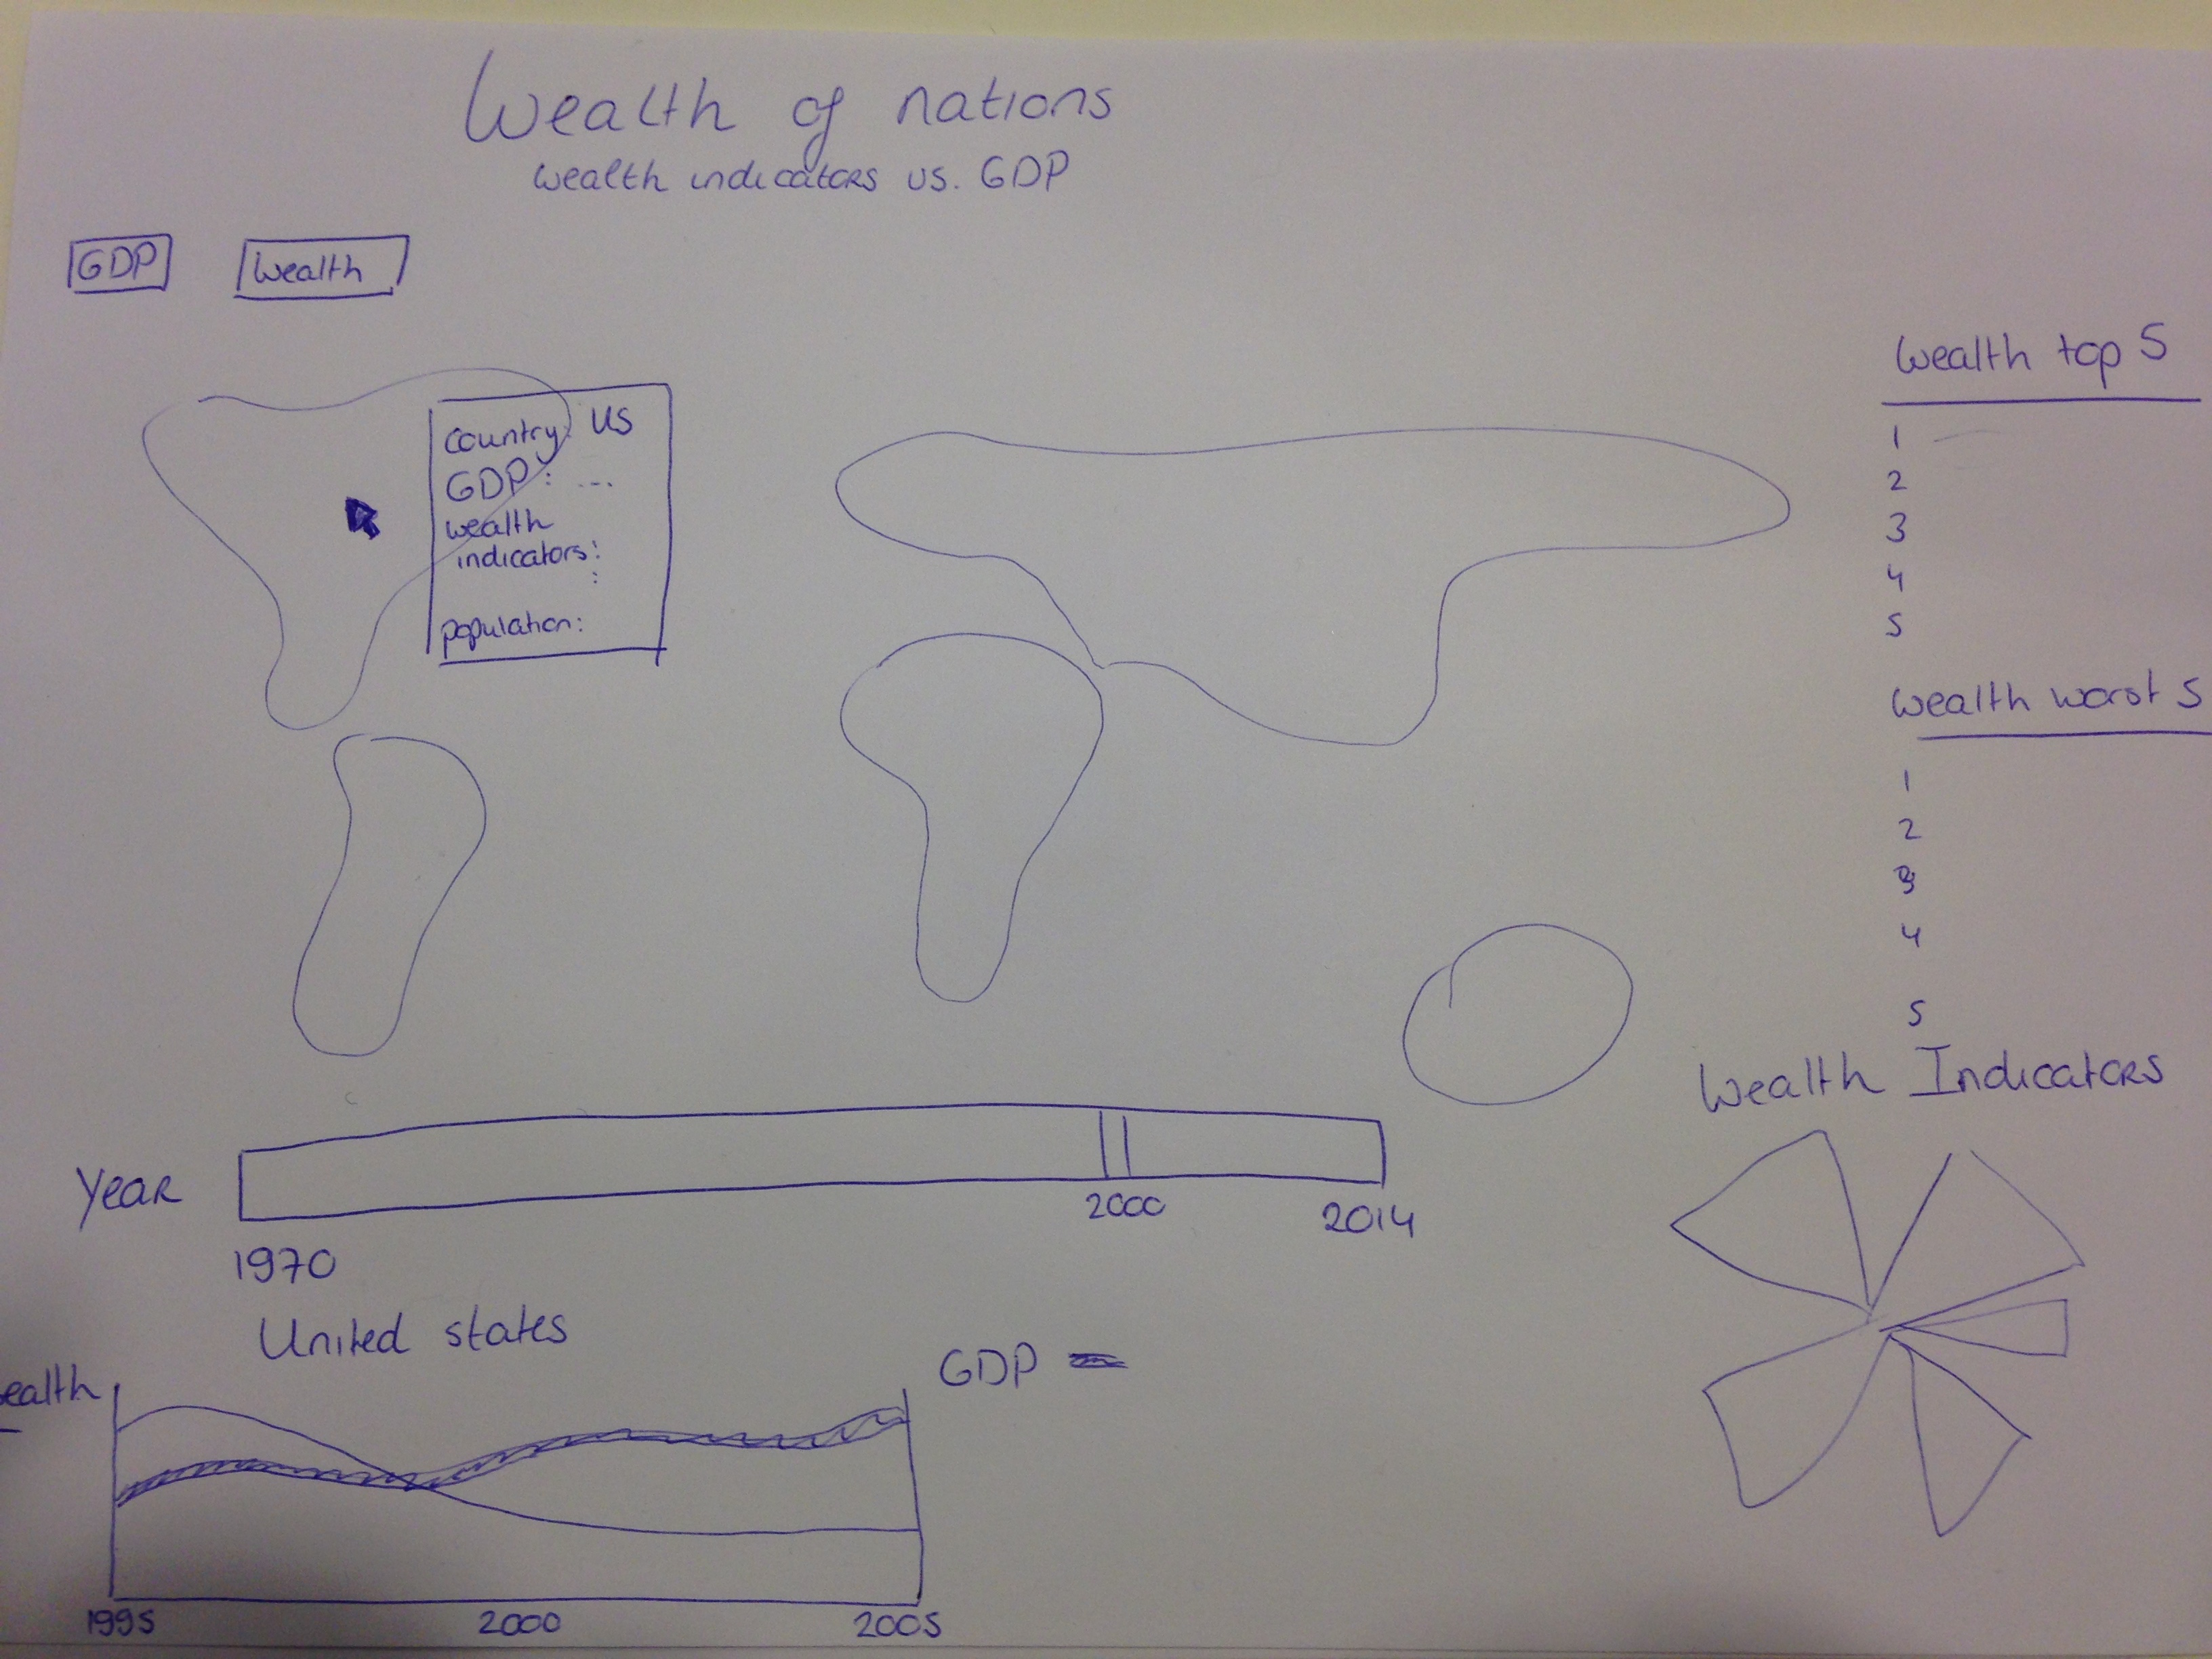 Wealth of nations
wealth indicators vs. GDP
GDP
Wealth
Country: US
GDP: ...
wealth
indicators:
:
population:
Wealth top 5
1
2
3
4
5
Wealth worst 5
1
2
3
4
5
Wealth Indicators
Year
2000
2014
1970
United states
ealth
GDP
1995
2000
2005